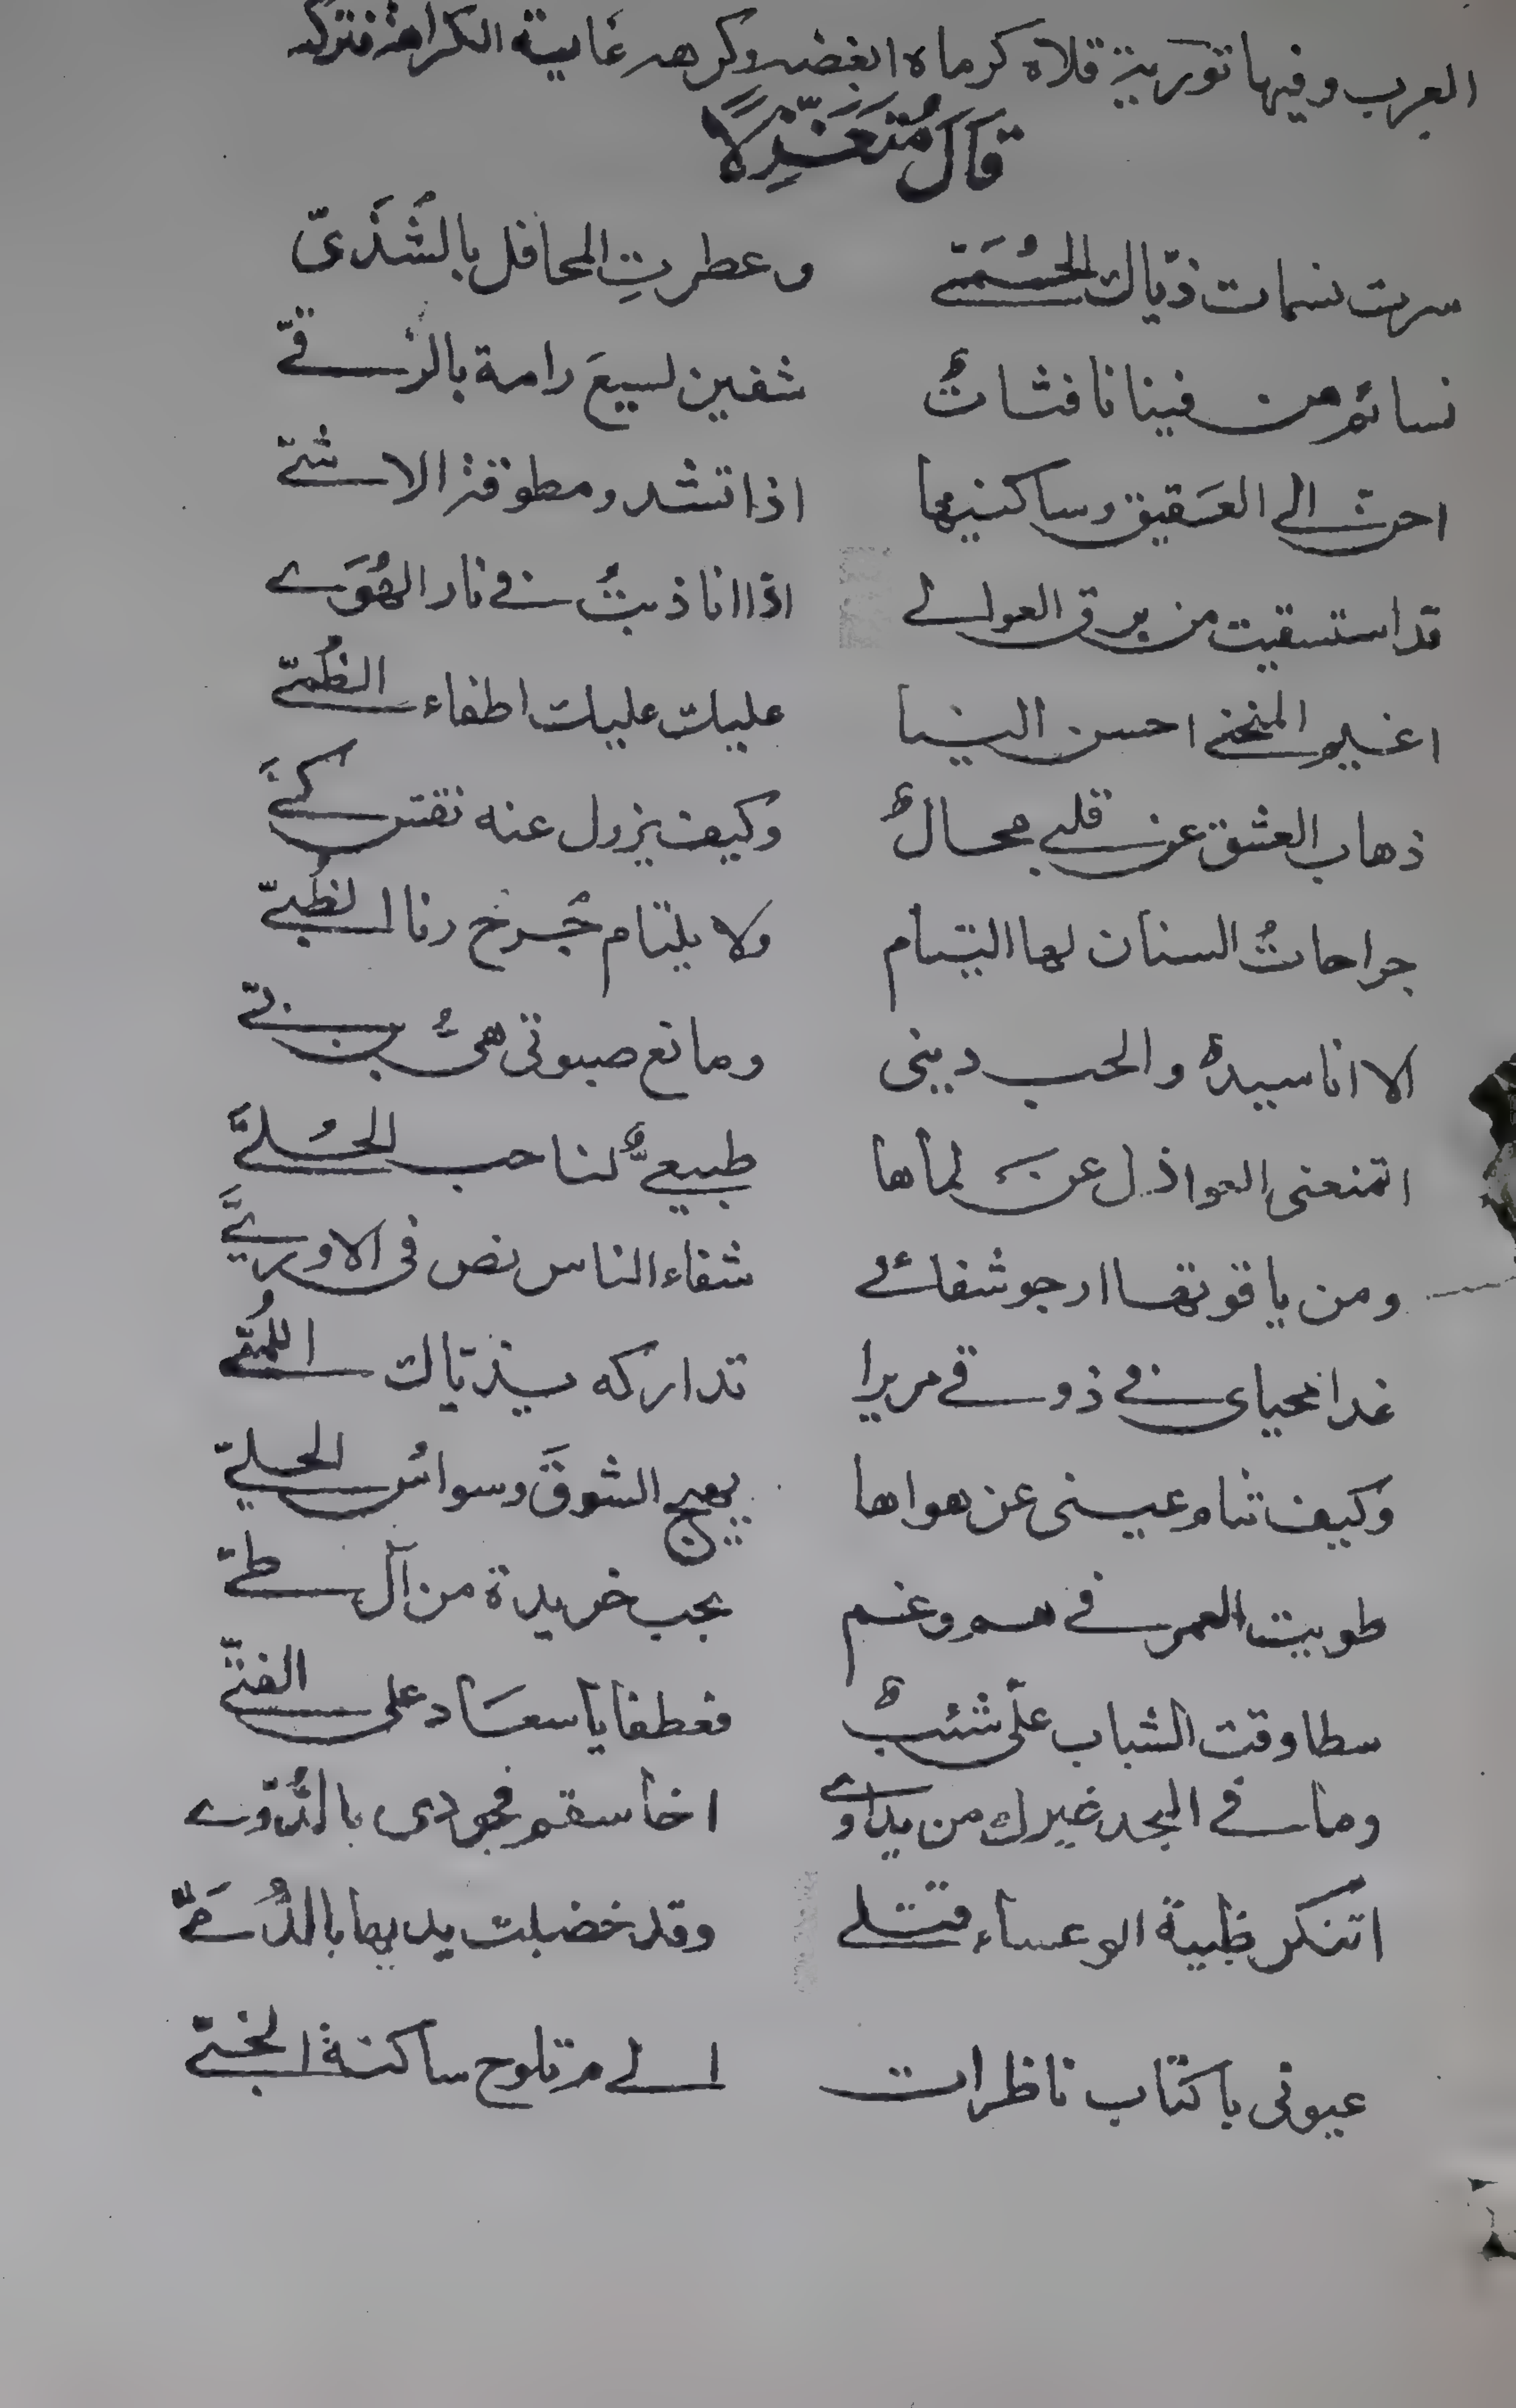 العرب وفيها تورية قلاه كرماه ابغضه وكرهه غاية الكراهة فتركه
قَالَ مُتَغَزِّلًا
سرت نسمات ذيّاك الحُمَىّ وعطرتِ المحافل بالشُذَىّ
نسائم هن فينا نافثاتٌ شفين لسيعَ رامة بالرُقىّ
احن الى العَقيق وساكنيها اذا تشدو مطوقة الاشىّ
قد استسقيت من برق العوالى اذا انا ذبتُ فى نار الهُوَى
اغيم المنحنى احسن الينا عليك عليك اطفاء الظُمىّ
ذهاب العشق عن قلبى محالٌ وكيف يزول عنه نقش كىَّ
جراحاتُ السنان لها التيام ولا يلتام جُرح رنا الظُبىّ
الا انا سيدٌ والحب دينى وما نع صبوتى هىُّ بن بىّ
اتمنعنى العواذل عن لماها طبيعىٌّ لنا حب الحُلىَّ
ومن ياقوتها ارجو شفائى شفاء الناس نص فى الاورىَّ
غدا محياى فى ذوقى مريرا تداركه بذيّاك اللُمىّ
وكيف ثناء عينى عن هواها يهيج الشوقَ وسواسُ الحلىّ
طويت العمر فى هم وغم بحب خريدة من آل طىّ
سطا وقت الشباب علىّ شئبٌ فعطفا يا سعاد على الفتىّ
وما فى النجد غيرك من يداوى اخا سقم فجودى بالدُّوَى
اتنكر ظبية الوعساء قتلى وقد خضبت يديها بالدُّمَىّ
عيونى باكتاب ناظرات الى م تلوح ساكنة الخبىّ